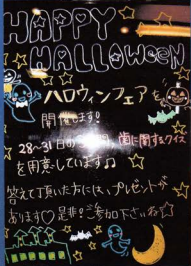 HAPPY
HALLOWEEN
ハロウィンフェアを
開催します!
28〜31日の 間、歯に関するクイズ
を用意しています♫
答えて頂いた方には、プレゼントが
あります♡是非!ご参加下さいね☆